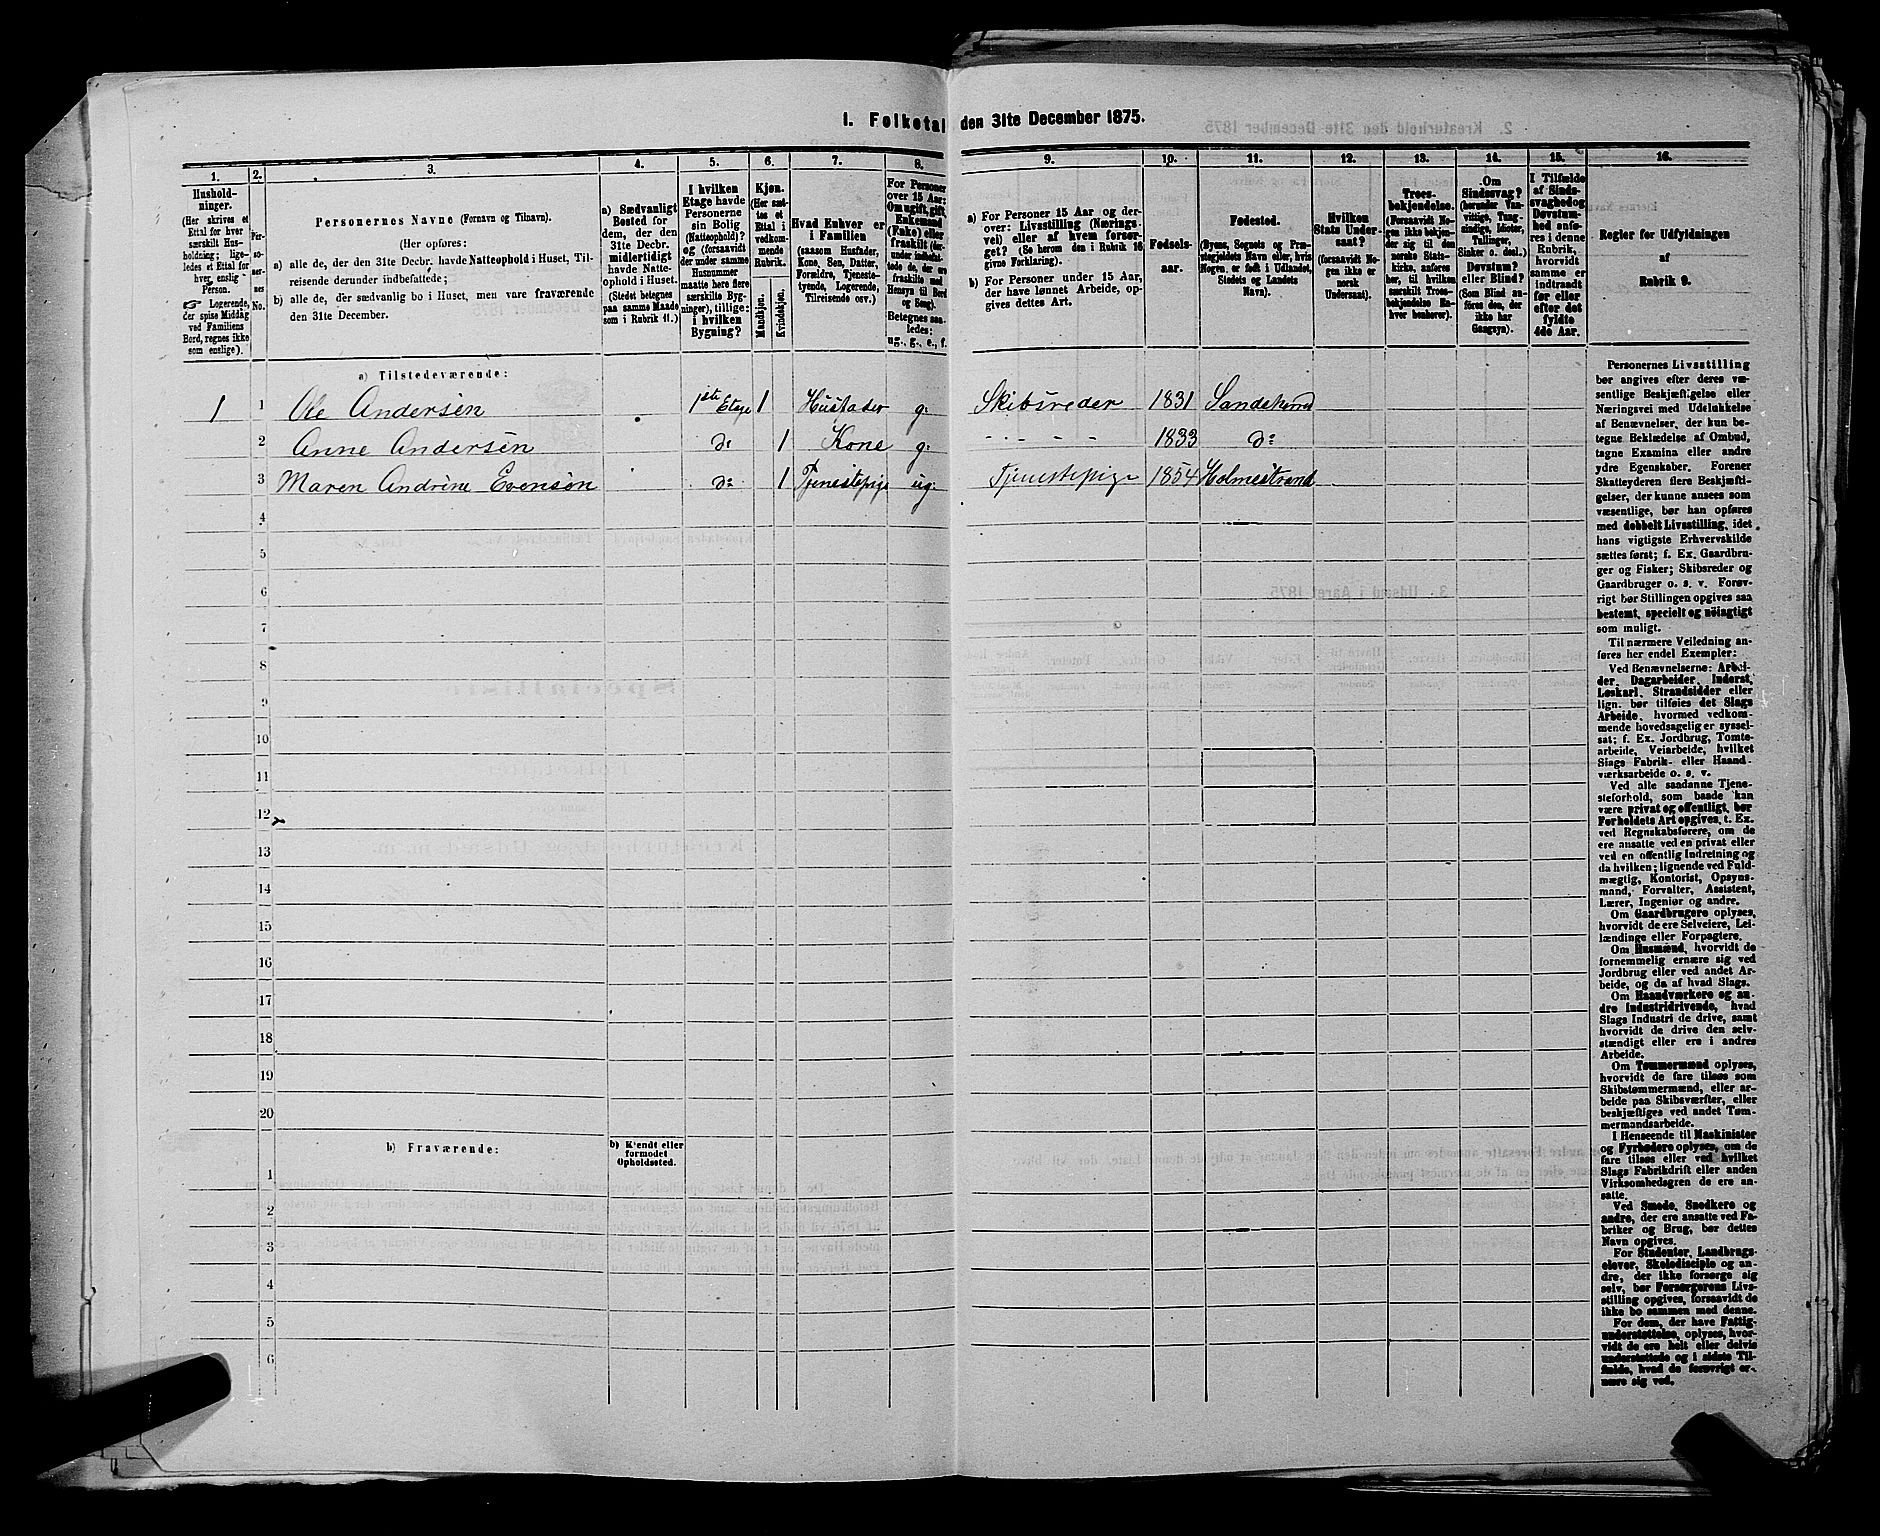 1. Folketal den 31te December 1875.
1.
Hushold-
ninger.
(Her skrives et
Ettal for hver
særskilt Hus-
holdning; lige-
ledes et Ettal for
hver enslig
Person.
☞ Logerende,
der spise Middag
ved Familiens
Bord, regnes ikke
som enslige).
2.
Per-
so-
ner-
nes
No.
3.
Personernes Navne (Fornavn og Tilnavn).
(Her opføres:
a) alle de, der den 31te Decbr. havde Natteophold i Huset, Til-
reisende derunder indbefattede;
b) alle de, der sædvanlig bo i Huset, men vare fraværende
den 31te December.
4.
a) Sædvanligt
Bosted for
dem, der den
31te Decbr.
midlertidigt
havde Natte-
ophold i Huset.
(Stedet betegnes
paa samme Maade
som i Rubrik 11.)
5.
I hvilken
Etage havde
Personerne
sin Bolig
(Natteophold)?
og (forsaavidt
der under samme
Husnummer
maatte høre flere
særskilte Byg-
ninger), tillige:
i hvilken
Bygning?
6.
Kjøn.
(Her sæt-
tes et
Ettal i
vedkom-
mende
Rubrik.
Mandkjøn.
Kvindekjøn.
7.
Hvad Enhver er
i Familien
(saasom Husfader,
Kone, Søn, Datter,
Forældre, Tjeneste-
tyende, Logerende,
Tilreisende osv.)
8.
For Personer
over 15 Aar:
Om ugift, gift,
Enkemand
(Enke) eller
fraskilt (der-
under indbefat-
tede de, der ere
fraskilte med
Hensyn til Bord
og Seng).
Betegnes saa-
ledes:
ug., g., e., f.
9.
a) For Personer 15 Aar og der-
over: Livsstilling (Nærings-
vei) eller af hvem forsør-
get? (Se herom den i Rubrik 16
givne Forklaring).
b) For Personer under 15 Aar,
der have lønnet Arbeide, op-
gives dettes Art.
10.
Fødsels-
aar.
11.
Fødested.
(Byens, Sognets og Præ-
stegjeldets Navn eller, hvis
Nogen er født i Udlandet,
Stedets og Landets
Navn).
12.
Hvilken
Stats Under-
saat?
(forsaavidt No-
gen ikke er
norsk
Undersaat).
13.
Troes-
bekjendelse.
(Forsaavidt No-
gen ikke bekjen-
der sig til den
norske Stats-
kirke, anføres
her, til hvilken
særskilt Troes-
bekjendelse En-
hver henhører).
14.
Om
Sindssvag?
(herunder Van-
vittige, Tung-
sindige, Idioter,
Tullinger,
Sinker o. desl.).
Døvstum?
eller Blind?
(Som Blind an-
føres den, der
ikke har
Gangsyn).
15.
I Tilfælde
af Sinds-
svaghed og
Døvstum-
hed anfø-
res i denne
Rubrik,
hvorvidt
samme er
indtraadt
før eller
efter det
fyldte
4de Aar.
16.
Regler for Udfyldningen
af
Rubrik 9.
a) Tilstedeværende:
1 1 Ole Andersen 1ste Etage 1 Husfader g. Skibsreder 1831 Sandeherred
2 Anne Andersen do 1 Kone g. - - - - 1833 do
3 Maren Andrine Evensøn do 1 Tjenestepige ug. Tjenestepige 1854 Holmestrand
4
5
6
7
8
9
10
11
12
13
14
15
16
17
18
19
20
b) Fraværende:
b) Kjendt eller
formodet
Opholdssted.
1
2
3
4
5
6
Personernes Livsstilling
bør angives efter deres væ-
sentlige Beskjæftigelse eller
Næringsvei med Udelukkelse
af Benævnelser, der kun be-
tegne Beklædelse af Ombud,
tagne Examina eller andre
ydre Egenskaber. Forener
Skatteyderen flere Beskjæfti-
gelser, der kunne ansees som
væsentlige, bør han opføres
med dobbelt Livsstilling, idet
hans vigtigste Erhvervskilde
sættes først; f. Ex. Gaardbru-
ger og Fisker; Skibsreder og
Gaardbruger o. s. v. Forøv-
rigt bør Stillingen opgives saa
bestemt, specielt og nøiagtigt
som muligt.
Til nærmere Veiledning an-
føres her endel Exempler:
Ved Benævnelserne: Arbei-
der, Dagarbeider, Inderst,
Løskarl, Strandsidder eller
lign. bør tilføies det Slags
Arbeide, hvormed vedkom-
mende hovedsagelig er syssel-
sat; f. Ex. Jordbrug, Tomte-
arbeide, Veiarbeide, hvilket
Slags Fabrik- eller Haand-
værksarbeide o. s. v.
Ved alle saadanne Tjene-
steforhold, som baade kan
være privat og offentligt, bør
Forholdets Art opgives, t. Ex.
ved Regnskabsførere, om de
ere ansatte ved en privat eller
ved en offentlig Indretning og
da hvilken; lignende ved Fuld-
mægtig, Kontorist, Opsyns-
mand, Forvalter, Assistent,
Lærer, Ingeniør og andre.
Om Gaardbrugere oplyses,
hvorvidt de ere Selveiere, Lei-
lændinge eller Forpagtere.
Om Husmænd, hvorvidt de
fornemmelig ernære sig ved
Jordbrug eller ved andet Ar-
beide, og da af hvad Slags.
Om Haandværkere og an-
dre Industridrivende, hvad
Slags Industri de drive, samt
hvorvidt de drive den selv-
stændigt eller ere i andres
Arbeide.
Om Tømmermænd oplyses,
hvorvidt de fare tilsøs som
Skibstømmermænd, eller ar-
beide paa Skibsværfter, eller
beskjæftiges ved andet Tøm-
mermandsarbeide.
I Henseende til Maskinister
og Fyrbødere oplyses, om de
fare tilsøs eller ved hvilket
Slags Fabrikdrift eller anden
Virksomhedsgren de ere an-
satte.
Ved Smede, Snedkere og
andre, der ere ansatte ved Fa-
briker og Brug, bør dettes
Navn opgives.
For Studenter, Landbrugs-
elever, Skoledisciple og an-
dre, der ikke forsørge sig
selv, bør Forsørgerens Livs-
stilling opgives, forsaavidt de
ikke bo sammen med denne.
For dem, der have Fattig-
understøttelse, oplyses, hvor-
vidt de ere helt eller delvis
understøttede og i sidste Til-
fælde, hvad de forøvrigt er-
nære sig ved.